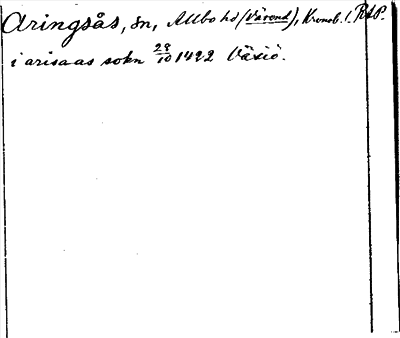 Aringsås, sn, Allbo hd (Värend), Kronob. l. RAP.
i arisaas sokn 29/10 1422 Växiö.